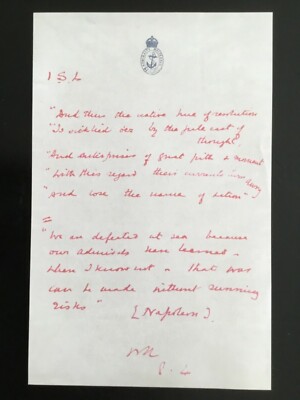 1 S L
"And thus the native hue of resolution
"Is sicklied o'er by the pale cast of
thought,
"And enterprises of great pith & moment
"With this regard their currents turn awry
"And lose the name of action"
=
"We are defeated at sea because
our admirals have learned -
where I know not - that war
can be made without running
risks"
[Napoleon].